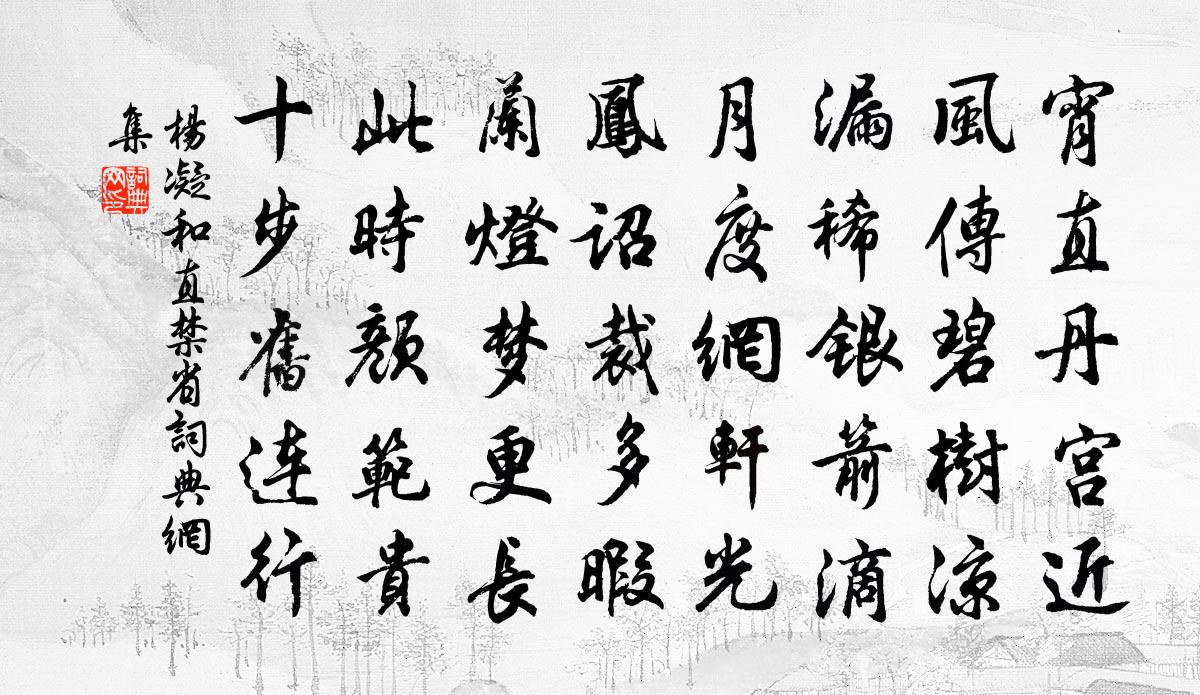 宵直丹宫近
風傳碧樹凉
漏稀銀箭滴
月度網軒光
鳳詔裁多暇
蘭燈梦更長
此時顏範貴
十步舊連行
楊凝和直禁省詞典網
集
詞典
网印